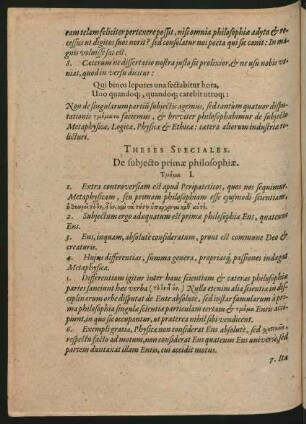 eam telam feliciter pertenere possit, nisi omnia philosophiæ adyta & re-
cessus ut digitos suos norit? sed consolatur nos poeta qui sic canit: In ma-
gnis voluisse sat est.
8. Cæterum ne dissertatio nostra justo sit prolixior, & ne usu nobis ve-
niat, quod in versu dicitur:
Qui binos lepores una sectabitur hora,
Uno quandoq;, quandoq; carebit utroq;:
Non de singularum partiũ subjectis agemus, sed tantum quatuor dispu-
tationis faciemus, & breviter philosophabimur de subjecto
Metaphysicæ, Logicæ, Physicæ & Ethicæ: cætera aliorum industriæ re-
licturi.
THESES SPECIALES.
De subjecto primæ philosophiæ.
Τμῆμα I.
1. Extra controversiam est apud Peripateticos, quos nos sequimur,
Metaphysicam, seu primam philosophiam esse ejusmodi scientiam,
2. Subjectum ergo adæquatum est prima philosophia Ens, quatenus
Ens.
3. Ens, inquam, absolutè consideratum, prout est commune Deo &
creaturis.
4. Hujus differentias, summa genera, proprias passiones indagat
Metaphysica.
5. Differentiam igitur inter hanc scientiam & cæteras philosophiæ
partes sancivit hæc verba Nulla etenim alia scientia in di-
sciplinarum orbe disputat de Ente absolutè, sed instar famularum à pri-
ma philosophia singulæ scientiæ particulam certam & τμῆμα Entis acci-
piunt, in quo se occupantur, ut præterea nihil sibi vendicent.
6. Exempli gratia, Physica non considerat Ens absolutè, sed
respectu facto ad motum, non considerat Ens quatenus Ens universè, sed
partem duntaxat illam Entis, cui accidit motus.
7. Ita